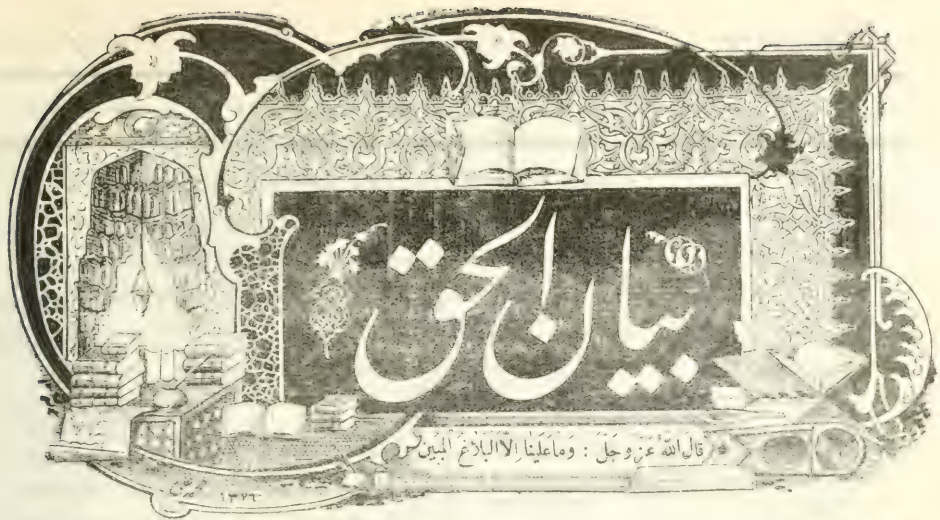 بيان الحق
قال الله عز وجل : وما علينا الا البلاغ المبين
١٣٢٦